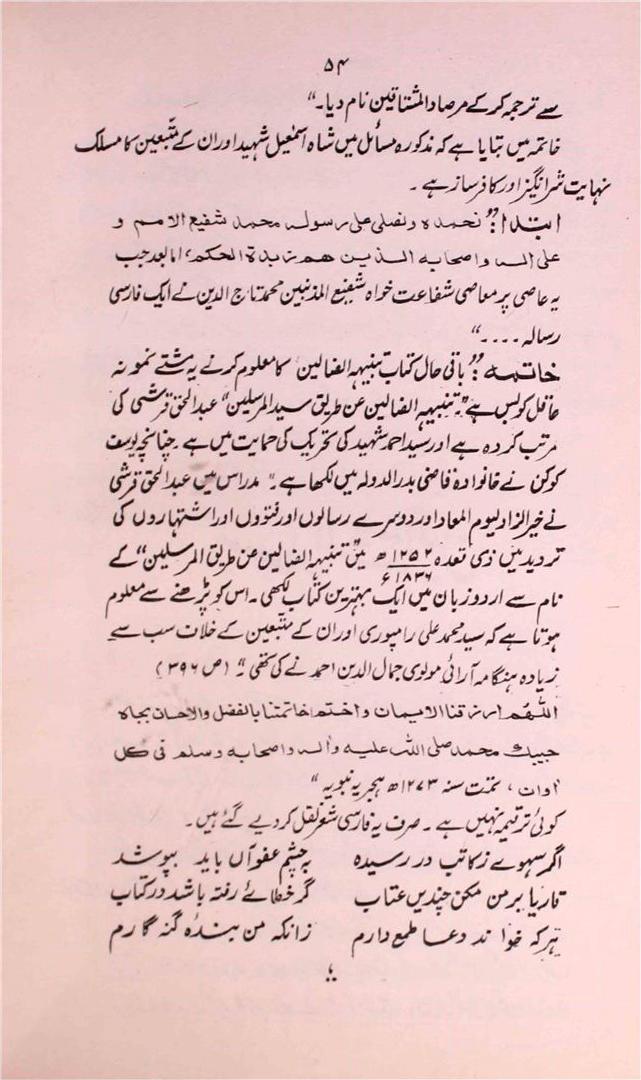 ۵۴
سے ترجمہ کر کے مرصاد المشتاقین نام دیا۔"
خاتمہ میں بتایا ہے کہ مذکورہ مسائل میں شاہ اسمٰعیل شہید اور ان کے متبعین کا مسلک
نہایت شرانگیز اور کافرساز ہے ۔
ابتدا:" نحمدہ ونصلی علی رسولہ محمد شفیع الامم و
علی الہ واصحابہ الذین ھم زبدۃ الحکم، امابعد جب
یہ عاصی پرمعاصی شفاعت خواہ شفیع المذنبین محمد تاج الدین نے ایک فارسی
رسالہ ....."
خاتمہ:" باقی حال کتاب تنبیہ الضالین کا معلوم کرنے یہ مشتے نمونہ
عاقل کو بس ہے" تنبیہ الضالین عن طریق سید المرسلین" عبدالحق قرشی کی
مرتب کردہ ہے اور سید احمد شہید کی تحریک کی حمایت میں ہے ۔ چنانچہ یوسف
کوکن نے خانوادہ قاضی بدرالدولہ میں لکھا ہے ۔" مدراس میں عبدالحق قرشی
نے خیر الزاد لیوم المعاد اور دوسرے رسالوں اور فتووں اور اشتہاروں کی
تردید میں ذی قعدہ ۱۲۵۲ھ میں تنبیہ الضالین عن طریق المرسلین" کے
۱۸۳۶ء
نام سے اردو زبان میں ایک بہترین کتاب لکھی ۔ اس کو پڑھنے سے معلوم
ہوتا ہے کہ سید محمد علی رامپوری اور ان کے متبعین کے خلاف سب سے
زیادہ ہنگامہ آرائی مولوی جمال الدین احمد نے کی تھی ۔" (ص ۳۹۶)
اللھم ارزقنا الایمان واختم خاتمتنا بالفضل والاحسان بجاہ
حبیبک محمد صلی اللہ علیہ والہ واصحابہ وسلم فی کل
اوان ، تمت سنہ ۱۲۷۳ھ ہجریہ نبویہ"
کوئی ترقیمہ نہیں ہے ۔ صرف یہ فارسی شعر نقل کر دیے گئے ہیں ۔
اگر سہوے ز کاتب در رسیدہ بہ چشم عفو آں باید بپوشد
قاریا بر من مکن چندیں عتاب گر خطائے رفتہ باشد در کتاب
ہر کہ خواند دعا طمع دارم زانکہ من بندہ گنہ گارم